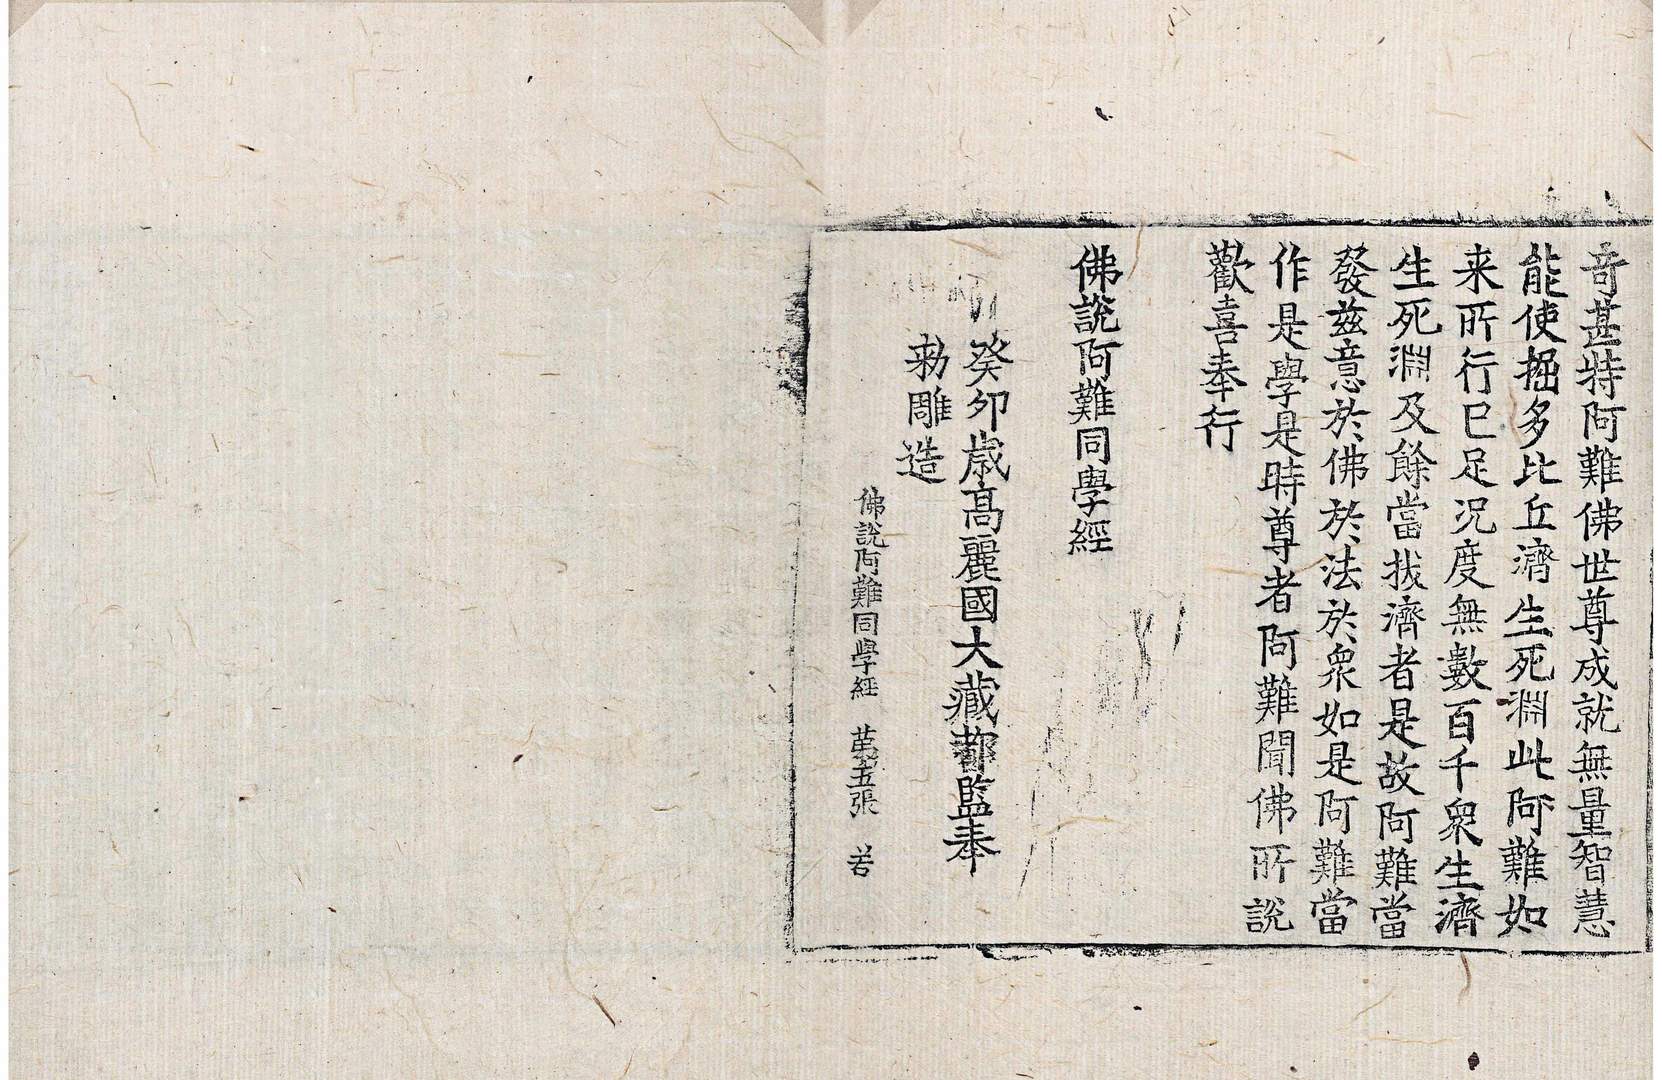 奇甚特阿難佛世尊成就無量智慧
能使掘多比丘濟生死淵此阿難如
来所行已足况度無數百千衆生濟
生死淵及餘當拔濟者是故阿難當
發兹意於佛於法於衆如是阿難當
作是學是時尊者阿難聞佛所說
歡喜奉行
佛說阿難同學經
癸卯歲高麗國大藏都監奉
勅雕造
佛說阿難同學經 苐五張 若